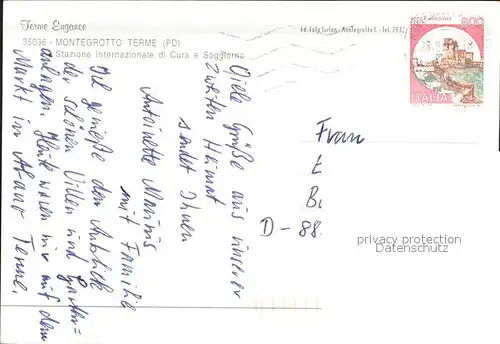 Terme Euganee
35036 - MONTEGROTTO TERME (PD)
Stazione Internazionale di Cura e Soggiorno
Ed. Foto Turlon, Montegrotto T. - Tel. 7932
800
ITALIA
Viele Grüße aus unserer
zweiten Heimat
sendet Ihnen
Antoinette
mit Familie
Ich genieße den Anblick
der schönen Villen und Gärten =
anlagen. Heute waren wir auf dem
Markt in Abano Terme.
Frau
E
B
D - 88
privacy protection
oldthing.de